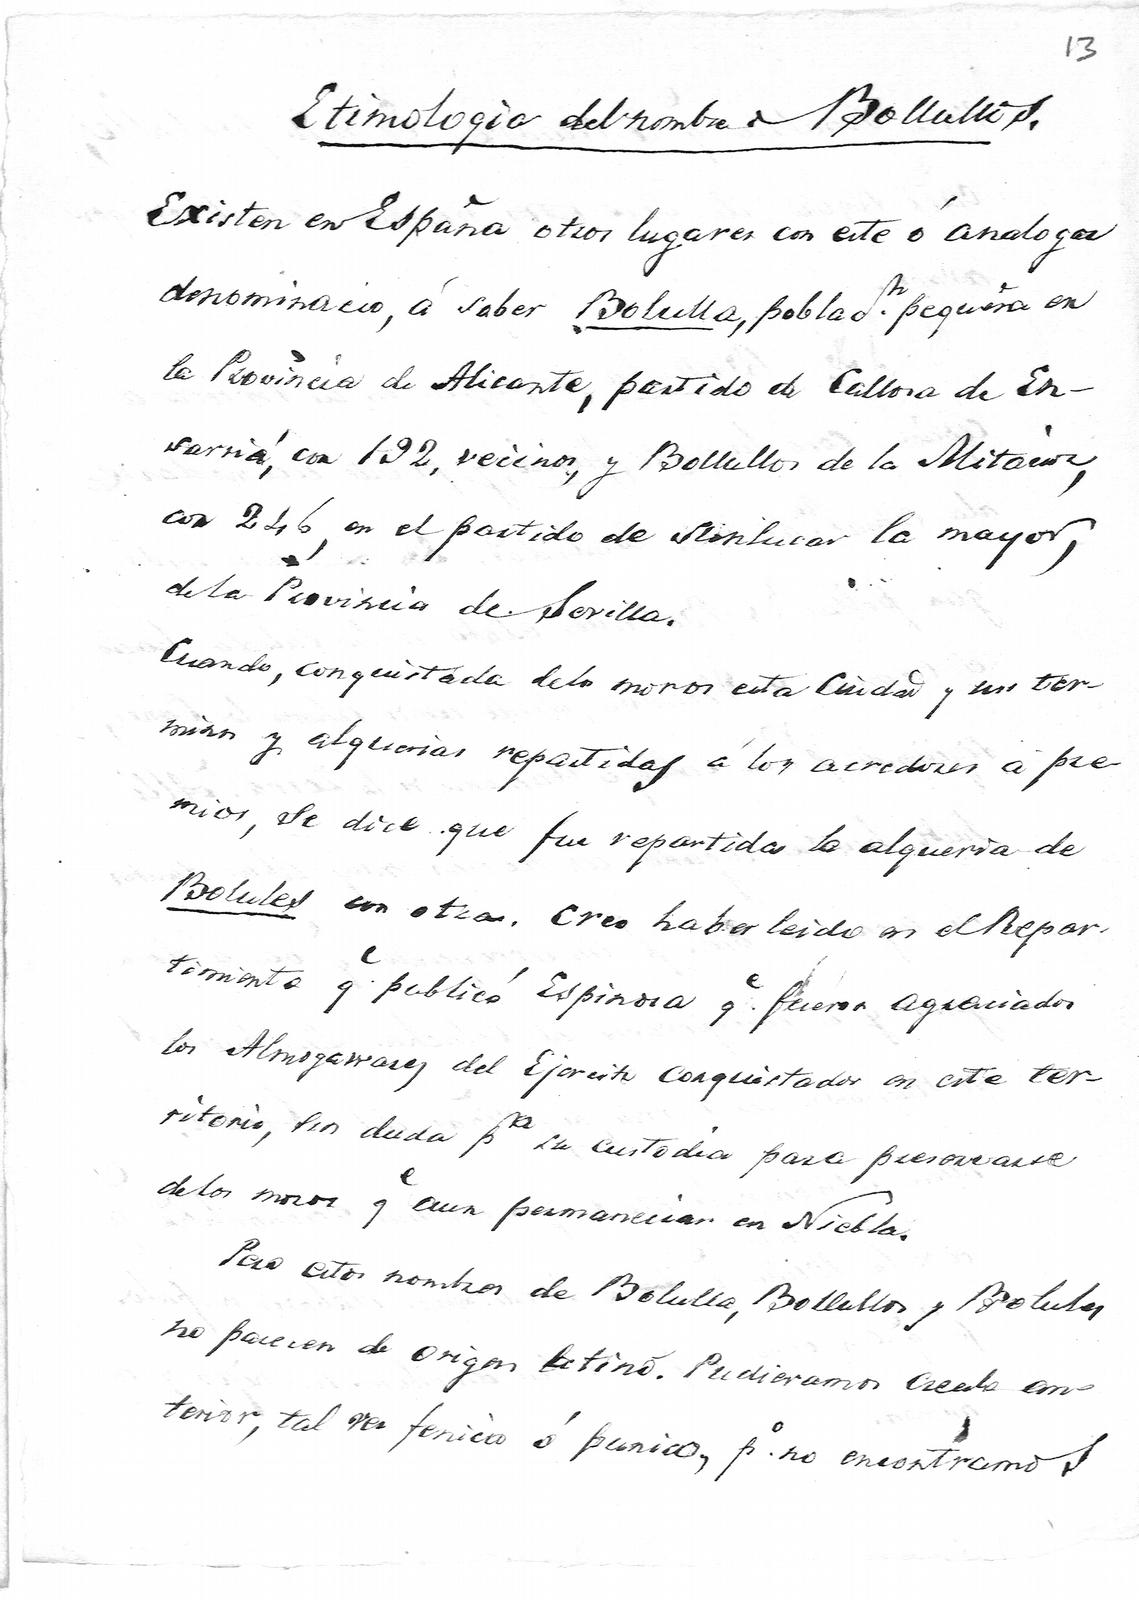 13
Etimologia del nombre de Bollullos.
Existen en España otros lugares con este ó analogas
denominacio, á saber Bolulla, poblaon. pequeña en
la Provincia de Alicante, partido de Callosa de En-
sarriá, con 192, vecinos, y Bollullos de la Mitacion,
con 246, en el partido de Sanlucar la mayor,
de la Provincia de Sevilla.
Cuando, conquistada de los moros esta Ciudad y sus ter-
minos y alquerias repartidas á los acredores á pre-
mios, se dice que fue repartida la alqueria de
Bolules con otras. Creo haber leido en el Repar-
timiento qe. publicó Espinosa qe. fueron agraciados
los Almogavares del Ejercito conquistador en este ter-
ritorio, sin duda pra su custodia para preservarse
de los moros qe aun permanecian en Niebla.
Pero estos nombres de Bolulla, Bollullos y Bolules
no parecen de origen latino. Pudieramos creerlo an-
terior, tal vez fenicio ó punico, po. no encontramos